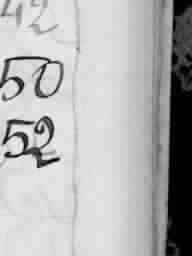 42
50
52